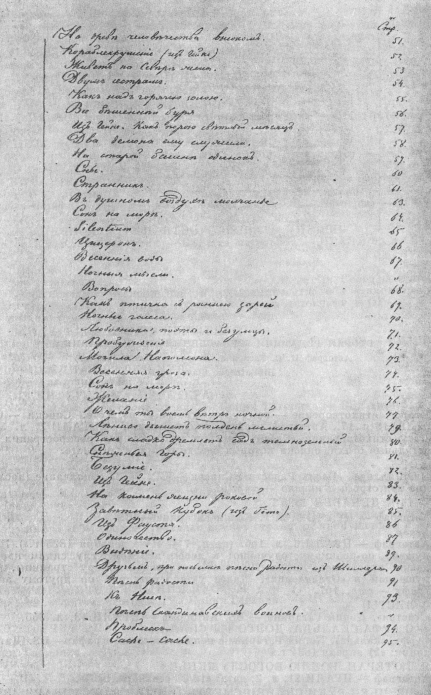 Стр.
На древе человечества высоком. 51.
Кораблекрушеніе (изъ Гейне) 52.
Живетъ на Сѣверѣ сосна. 53
Двумъ сестрамъ. 54.
Какъ надъ горячею золою. 55.
Въ буря 56.
Изъ Гейне. Какъ порою свѣтлый мѣсяцъ 57.
Два демона ему служили. 58.
На старой башнѣ одинокъ. 59.
60
Странникъ. 61.
Въ душномъ воздухѣ молчанье 63.
Сонъ на морѣ. 64.
Silentium 65
Цицеронъ. 66
Весеннія воды 67.
Ночныя мысли. "
Вопросы 68.
Какъ птичка съ раннею зарей 69.
Ночные голоса. 70.
Любовники, поэты и безумцы. 71.
Пробужденіе 72.
Могила Наполеона. 73.
Весенняя гроза. 74.
Сонъ на морѣ. 75.
Желаніе 76.
О чемъ ты воешь вѣтръ ночной. 77
Лѣниво дышетъ полдень мглистый. 79.
Какъ сладко дремлетъ садъ темнозеленый 80.
Снѣжныя Горы. 81.
Безуміе. 82.
Изъ Гейне. 83.
На камень жизни роковой 84.
Завѣтный Кубокъ (изъ Гёте). 85.
Изъ Фауста. 86
Одиночество. 87
Видѣніе. 89.
Друзьямъ, при посылкѣ пѣсни Радости изъ Шиллера. 90
Пѣснь радости 91
Къ Нисѣ. 93.
Пѣснь Скандинавскихъ воиновъ. "
Проблескъ 94.
Cache-Cache. 95.